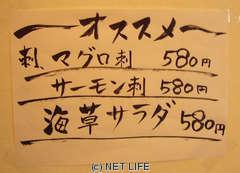 オススメ
刺、マグロ刺 580円
サーモン刺 580円
海草サラダ 580円
(C) NET LIFE